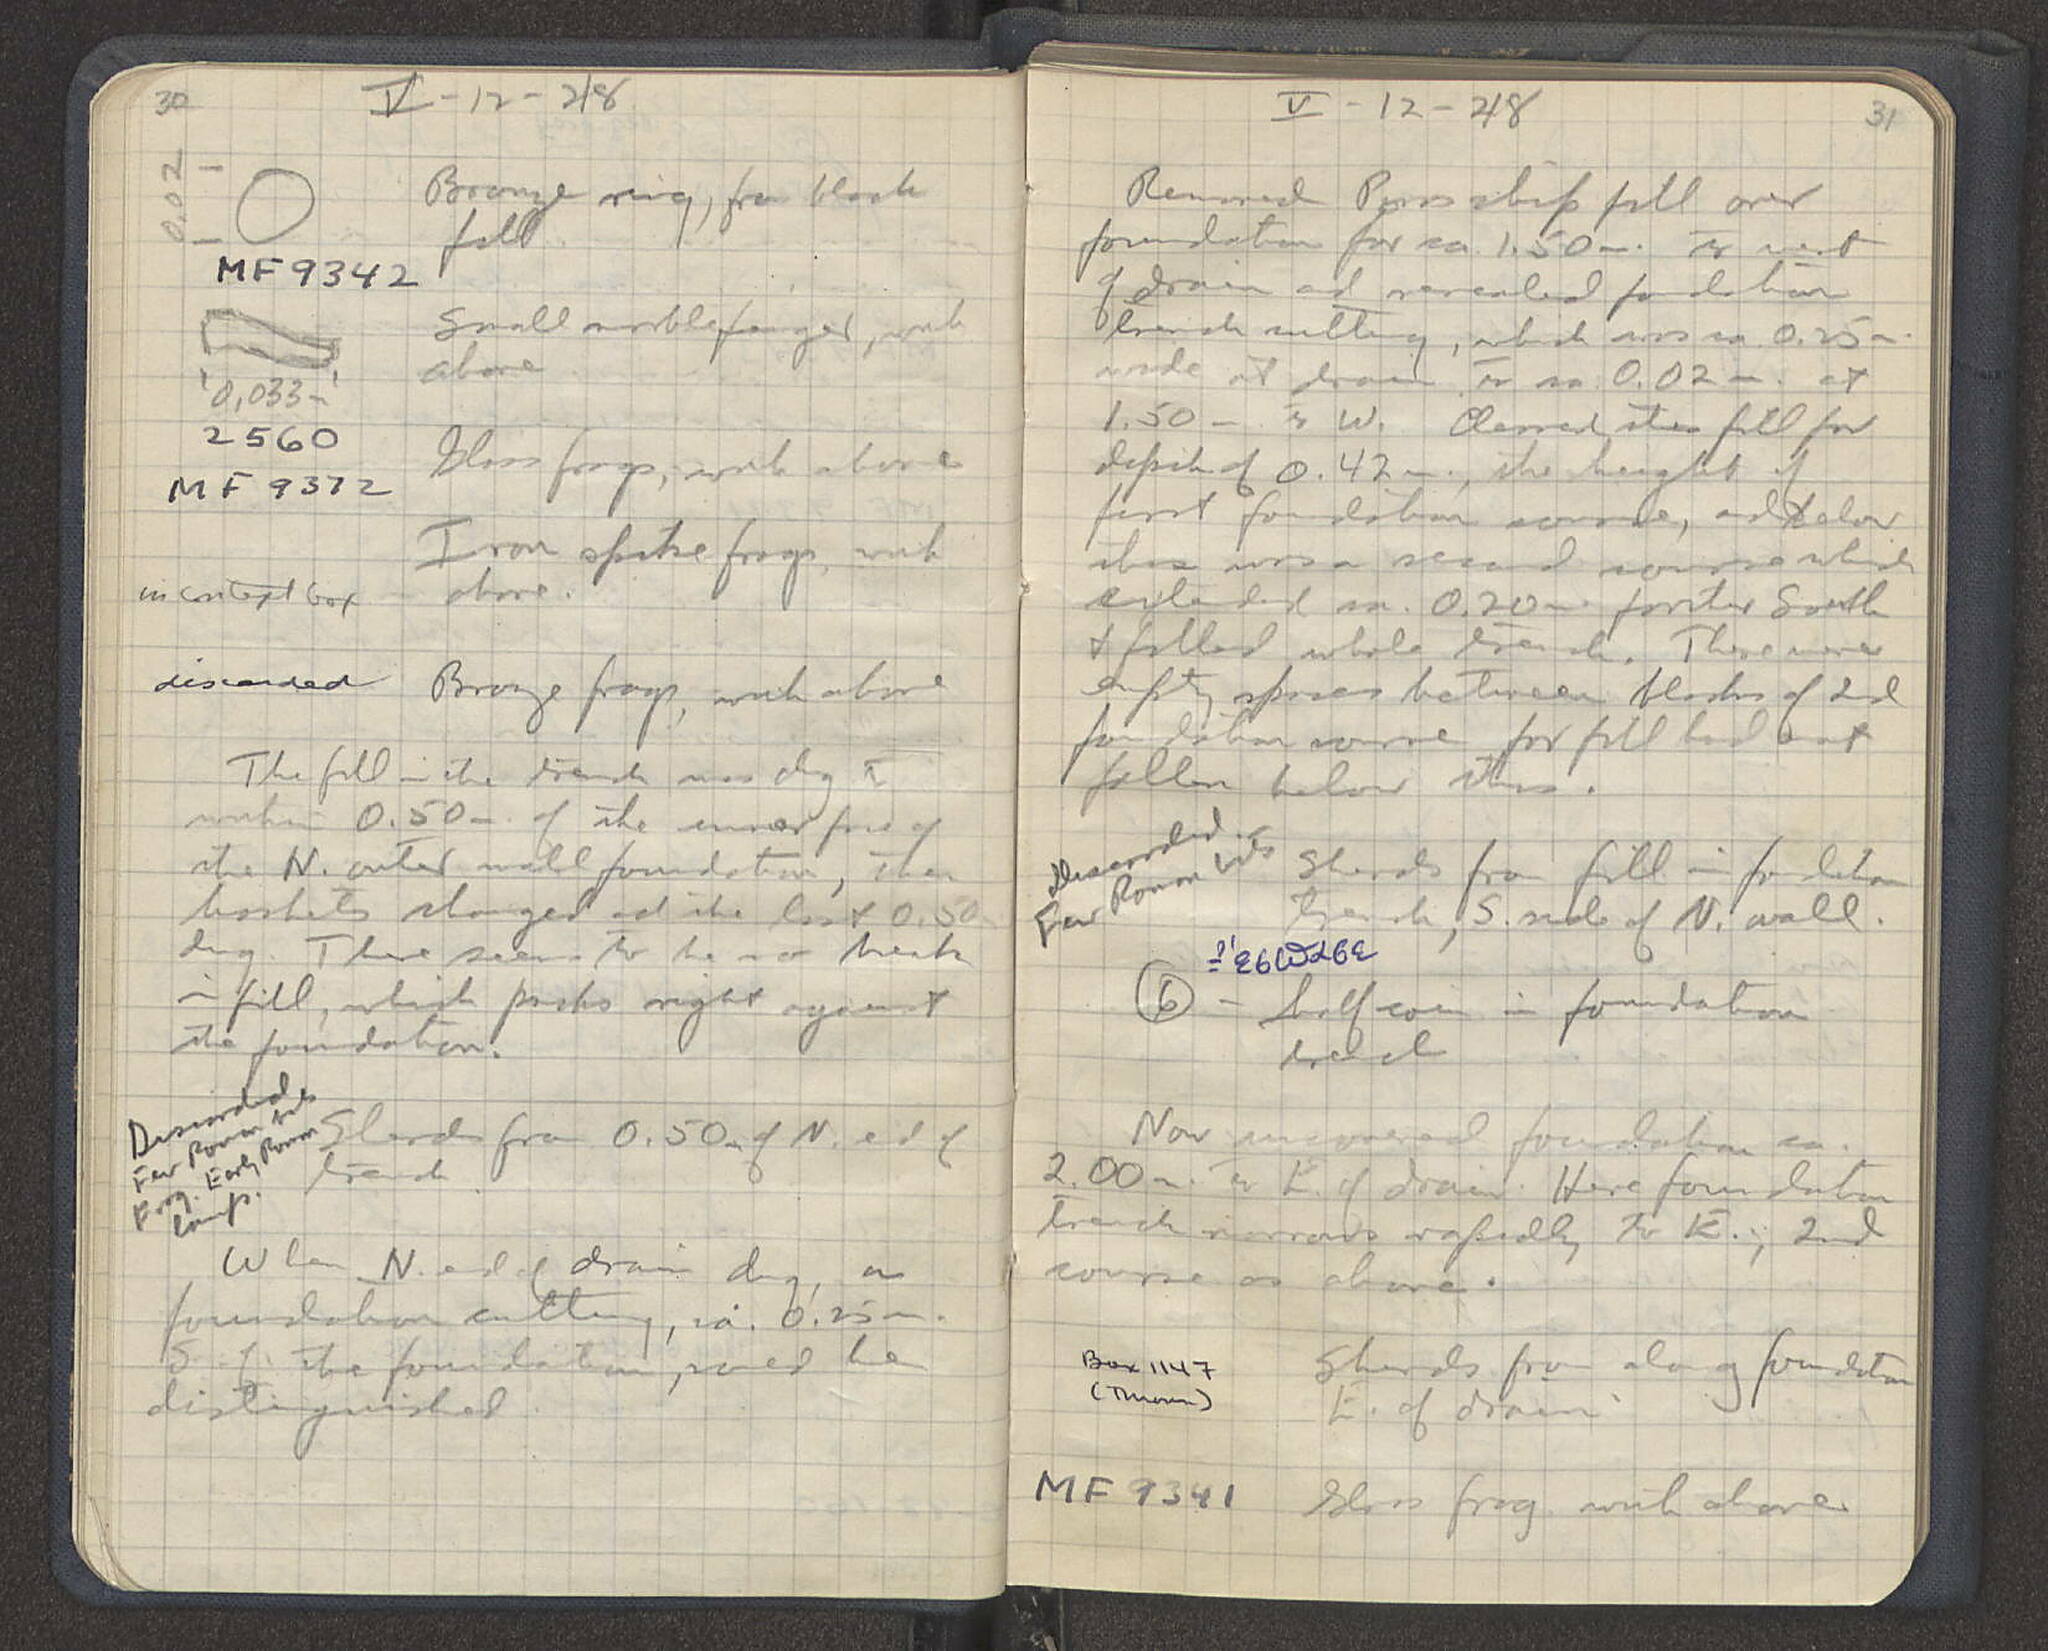 30
V - 12 - 48
0.02
Bronze ring, from black
fill
MF 9342
Small marble finger, with
above
0,033 m
2560
Glass frags, with above
MF 9372
Iron spike frags, with
above.
in context box
discarded
Bronze frags, with above
The fill in the trench was dug to
within 0.50 m. of the inner face of
the N. outer wall foundation, then
baskets changed and the last 0.50
dug. There seems to be no break
in fill, which packs right against
the foundation.
Discarded
Few Roman bits
Frag. Early Roman
lamp.
Sherds from 0.50 m of N. end of
trench
When N. end of drain dug, a
foundation cutting, ca. 0.25 m.
S. of the foundation, could be
distinguished
V - 12 - 48
31
Removed Poros chip fill over
foundation for ca. 1.50 m. to west
of drain and revealed foundation
trench cutting, which was ca 0.25 m.
wide at drain to ca 0.02 m. at
1.50 m to W. Cleared this fill for
depth of 0.42 m., the height of
first foundation course, and below
this was a second course which
extended ca. 0.20 m. further South
& filled whole trench. There were
empty spaces between blocks of 2nd
foundation course for fill had not
fallen below this.
discarded
Few Roman bits
Sherds from fill in foundation
trench, S. side of N. wall.
6 - half coin in foundation
trench
Now uncovered foundation ca.
2.00 m. to E. of drain. Here foundation
trench narrows rapidly to E.; 2nd
course as above.
Box 1147
(Thrown)
Sherds from along foundation
E. of drain
MF 9341
Glass frag. with above